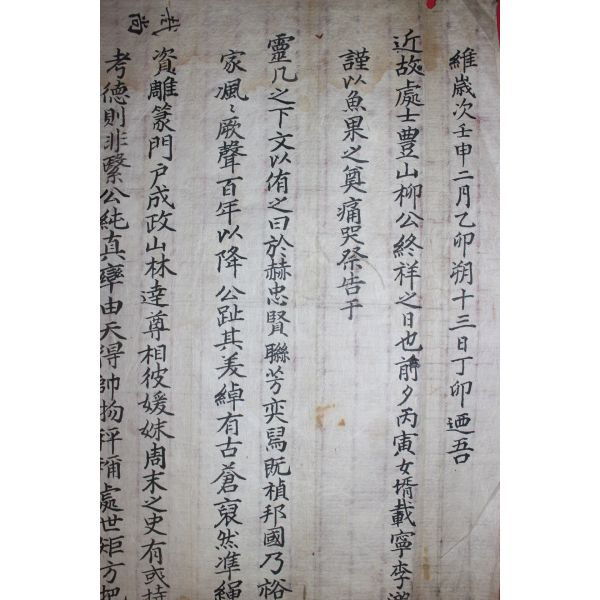 維歲次壬申二月乙卯朔十三日丁卯迺吾
近故處士豊山柳公終祥之日也前夕丙寅女壻載寧李
謹以魚果之奠痛哭祭告于
靈几之下文以侑之曰於赫忠賢聯芳奕舃旣禎邦國乃裕
家渢〻厥聲百年以降公趾其羙綽有古蒼裒然准繩
資雕篆門戶成政山林達尊相彼媛姝周末之史有或持
考德則非繄公純真率由天得帥物秤彌處世矩方把